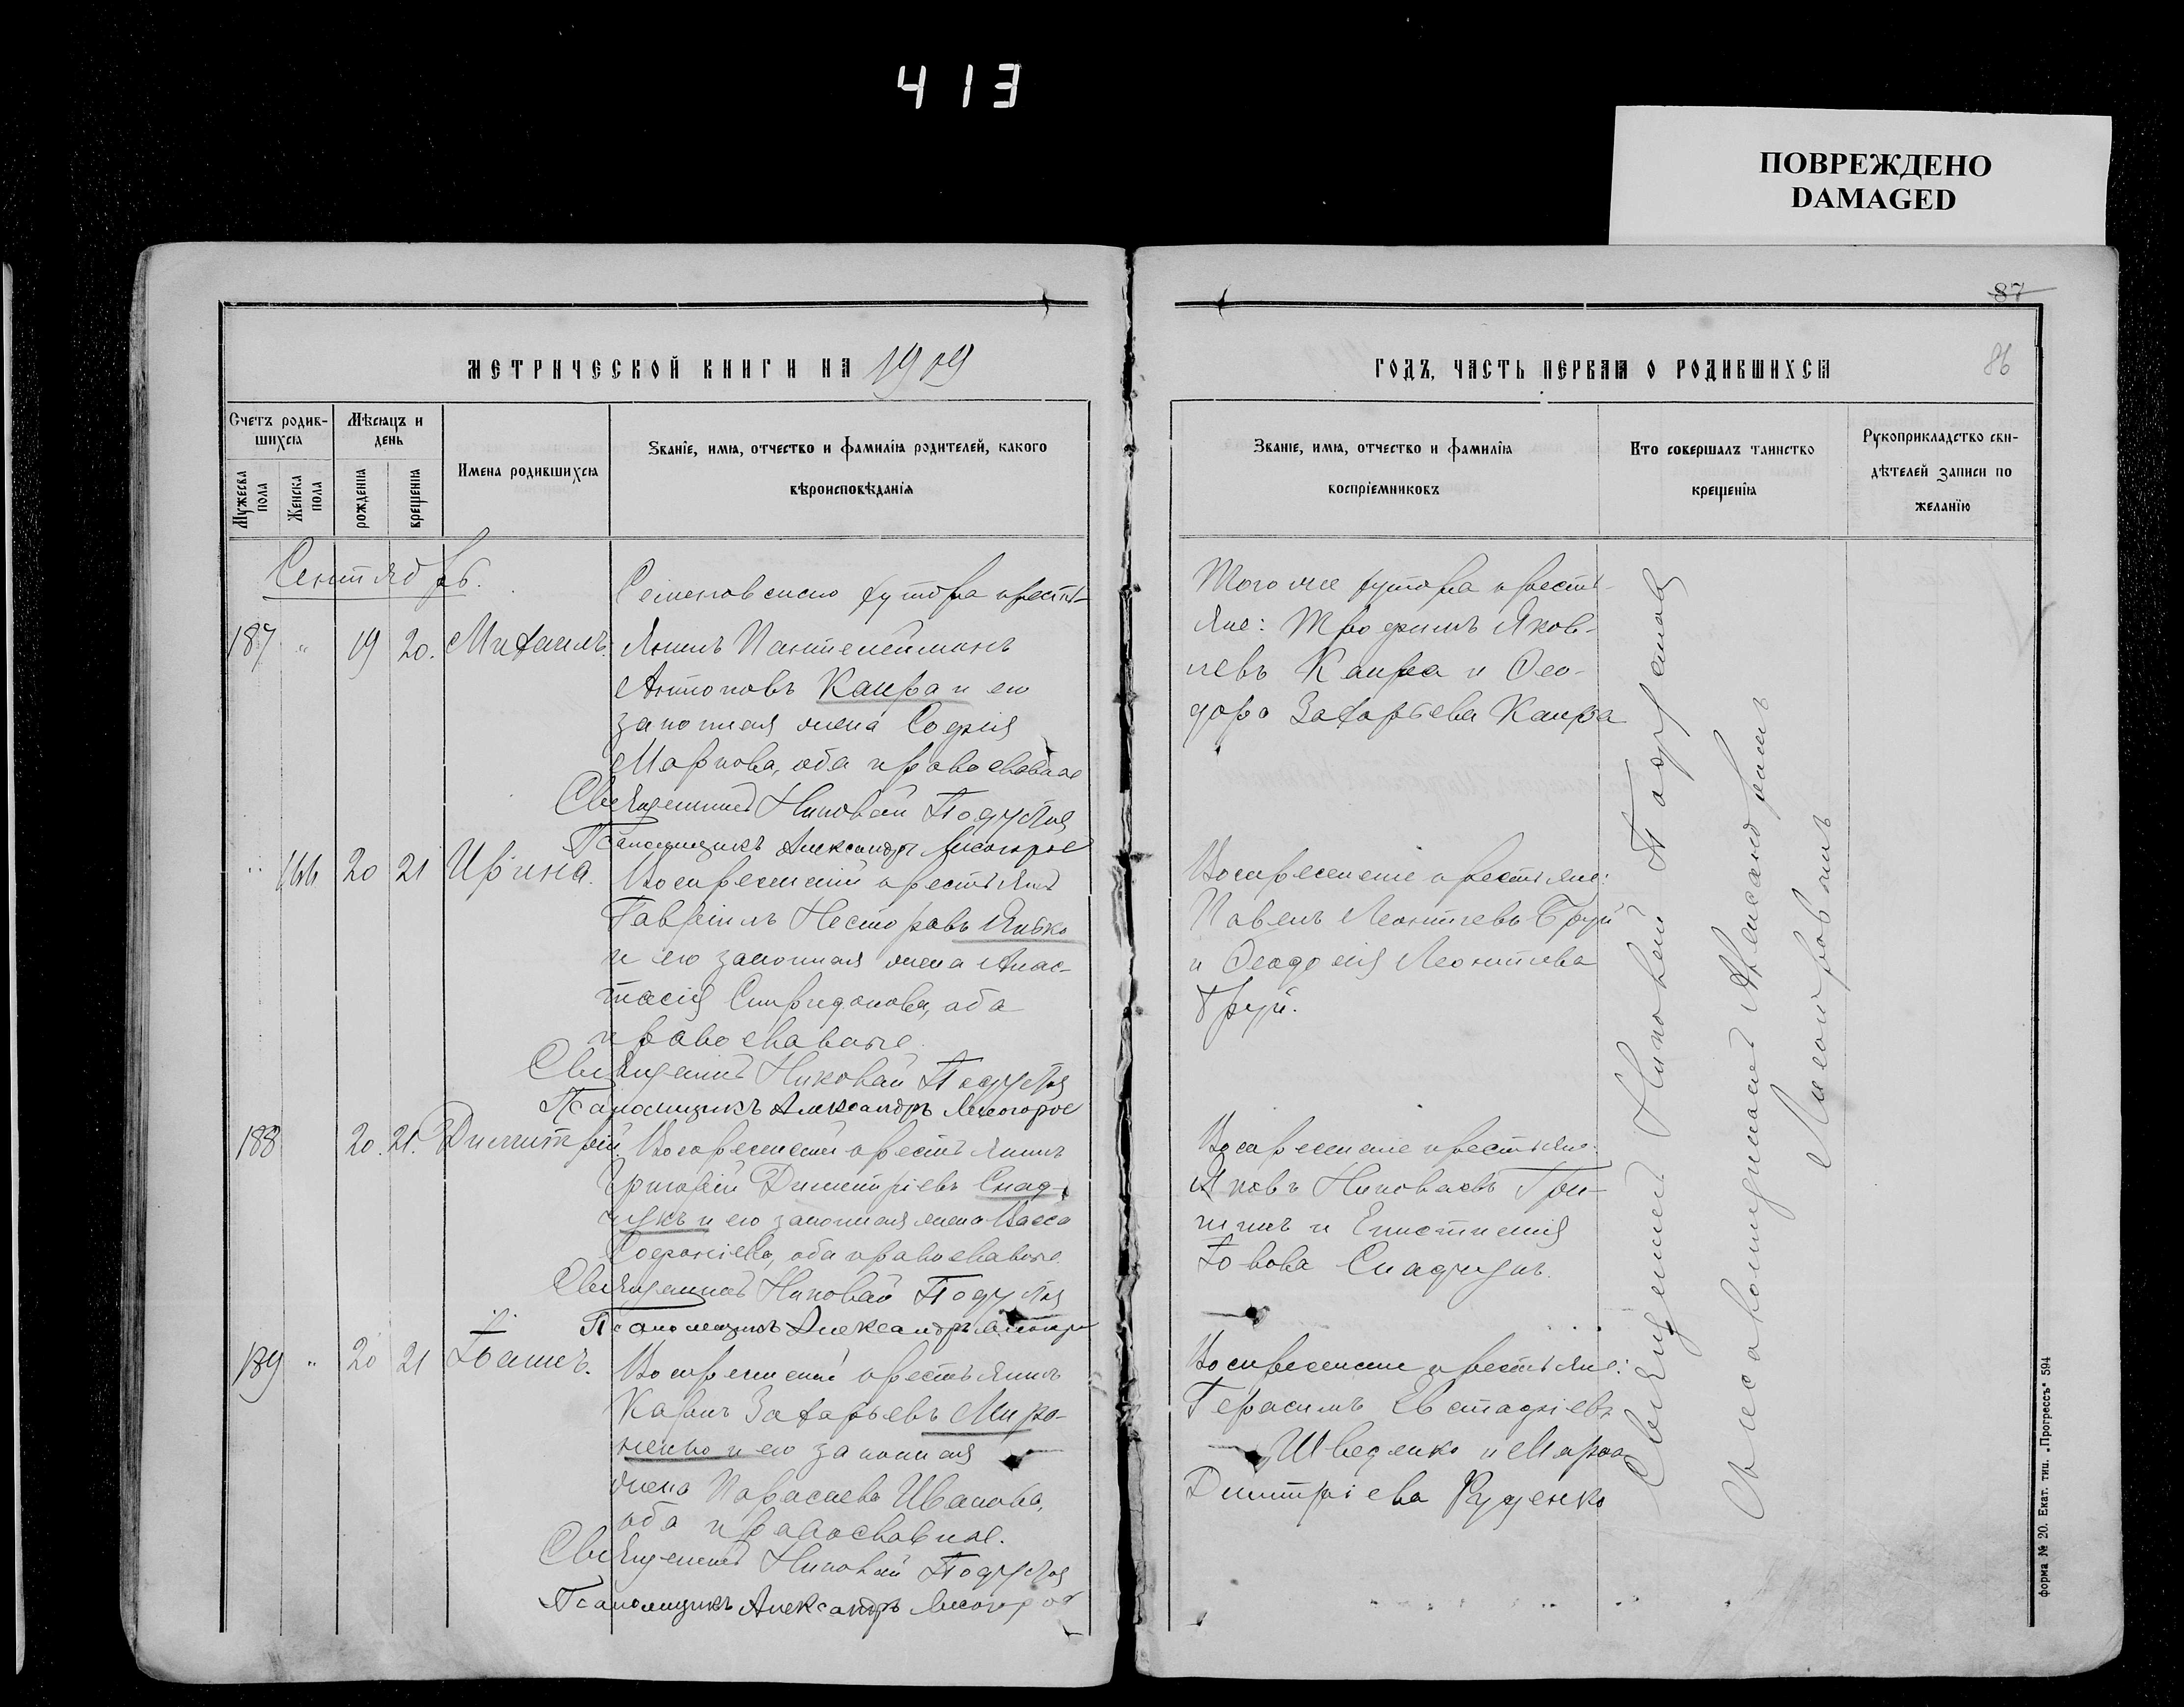 413
ПОВРЕЖДЕНО
DAMAGED
87
86
МЕТРИЧЕСКОЙ КНИГИ НА 1909
ГОДЪ, ЧАСТЬ ПЕРВАЯ О РОДИВШИХСЯ
Счетъ родив-
шихся
Мужеска
пола
Женска
пола
Мѣсяцъ и
день
рожденія
крещенія
Имена родившихся
Званіе, имя, отчество и фамилія родителей, какого
вѣроисповѣданія
Званіе, имя, отчество и фамилія
воспріемниковъ
Кто совершалъ таинство
крещенія
Рукоприкладство сви-
дѣтелей записи по
желанію
Сентябрь.
187 " 19 20. Михаилъ.
Семеновскаго хутора кресть-
янинъ Пантелеймонъ
Антоновъ Каира и его
законная жена Софія
Маркова, оба православные
Священникъ Николай
Псаломщикъ Александръ
Того же хутора кресть-
яне: Трофимъ Яков-
левъ Каира и Ѳео-
дора Захарьева Каира
" 166 20 21 Ирина.
Воскресенскій крестьянинъ
Гавріилъ Несторовъ
и его законная жена Анас-
тасія Спиридонова, оба
православные.
Священникъ Николай
Псаломщикъ Александръ
Воскресенскіе крестьяне:
Павелъ Леонтіевъ Бруй
и Ѳеодосія Леонтіева
Бруй.
188 20. 21. Димитрій.
Воскресенскій крестьянинъ
Григорій Димитріевъ Снад-
чукъ и его законная жена Васса
Софоніева, оба православные.
Священникъ Николай
Псаломщикъ Александръ
Воскресенскіе крестьяне:
Яковъ Николаевъ
и Епистимія
Іовова Снадчукъ.
189 " 20 21 Іоаннъ.
Воскресенскій крестьянинъ
Карпъ Захарьевъ Миро-
ненко и его законная
жена Параскева Иванова,
оба православные.
Священникъ Николай
Псаломщикъ Александръ
Воскресенскіе крестьяне:
Герасимъ Евстафіевъ
Шведенко и Марѳа
Димитріева Руденко
Священникъ Николай
съ псаломщикомъ Александромъ
форма № 20. Екат. тип. „Прогрессъ" 594